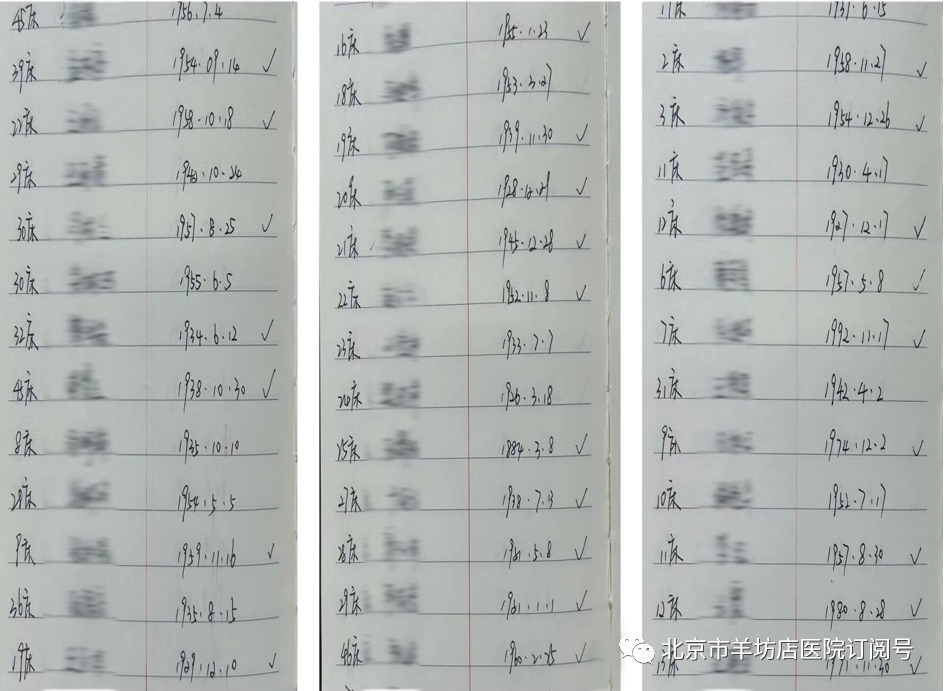 45床 1956.7.4
39床 1954.09.14 ✓
22床 1958.10.18 ✓
29床 1942.10.24
30床 1957.8.25 ✓
30床 1955.6.5
32床 1934.6.12 ✓
43床 1938.10.30 ✓
8床 1935.10.10
28床 1954.5.5
9床 1959.11.16 ✓
36床 1935.8.15
19床 1929.12.10 ✓
16床 1955.1.23 ✓
18床 1953.3.27
19床 1939.11.30 ✓
20床 1928.12.21 ✓
21床 1945.12.28 ✓
22床 1952.11.8 ✓
23床 1933.7.7
24床 1926.3.18
25床 1884.3.8 ✓
27床 1938.7.13 ✓
28床 1961.5.8 ✓
29床 1961.1.1 ✓
46床 1960.2.25 ✓
17床 1931.6.15
2床 1958.11.27 ✓
3床 1954.12.26 ✓
11床 1930.4.17
12床 1927.12.17 ✓
6床 1957.5.8 ✓
7床 1992.11.17 ✓
31床 1942.4.2
9床 1974.12.2 ✓
10床 1952.7.17
11床 1957.8.30 ✓
12床 1980.8.28 ✓
15床 1971.11.30 ✓
北京市羊坊店医院订阅号